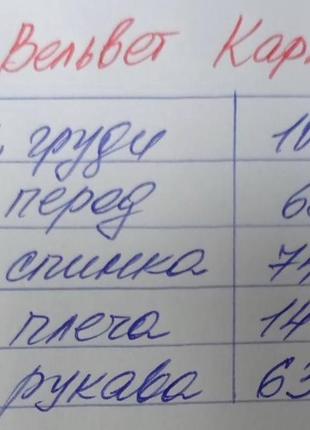 Вельвет Кар
груди 1
перед 6
спинка 7
плеча 14
рукава 63